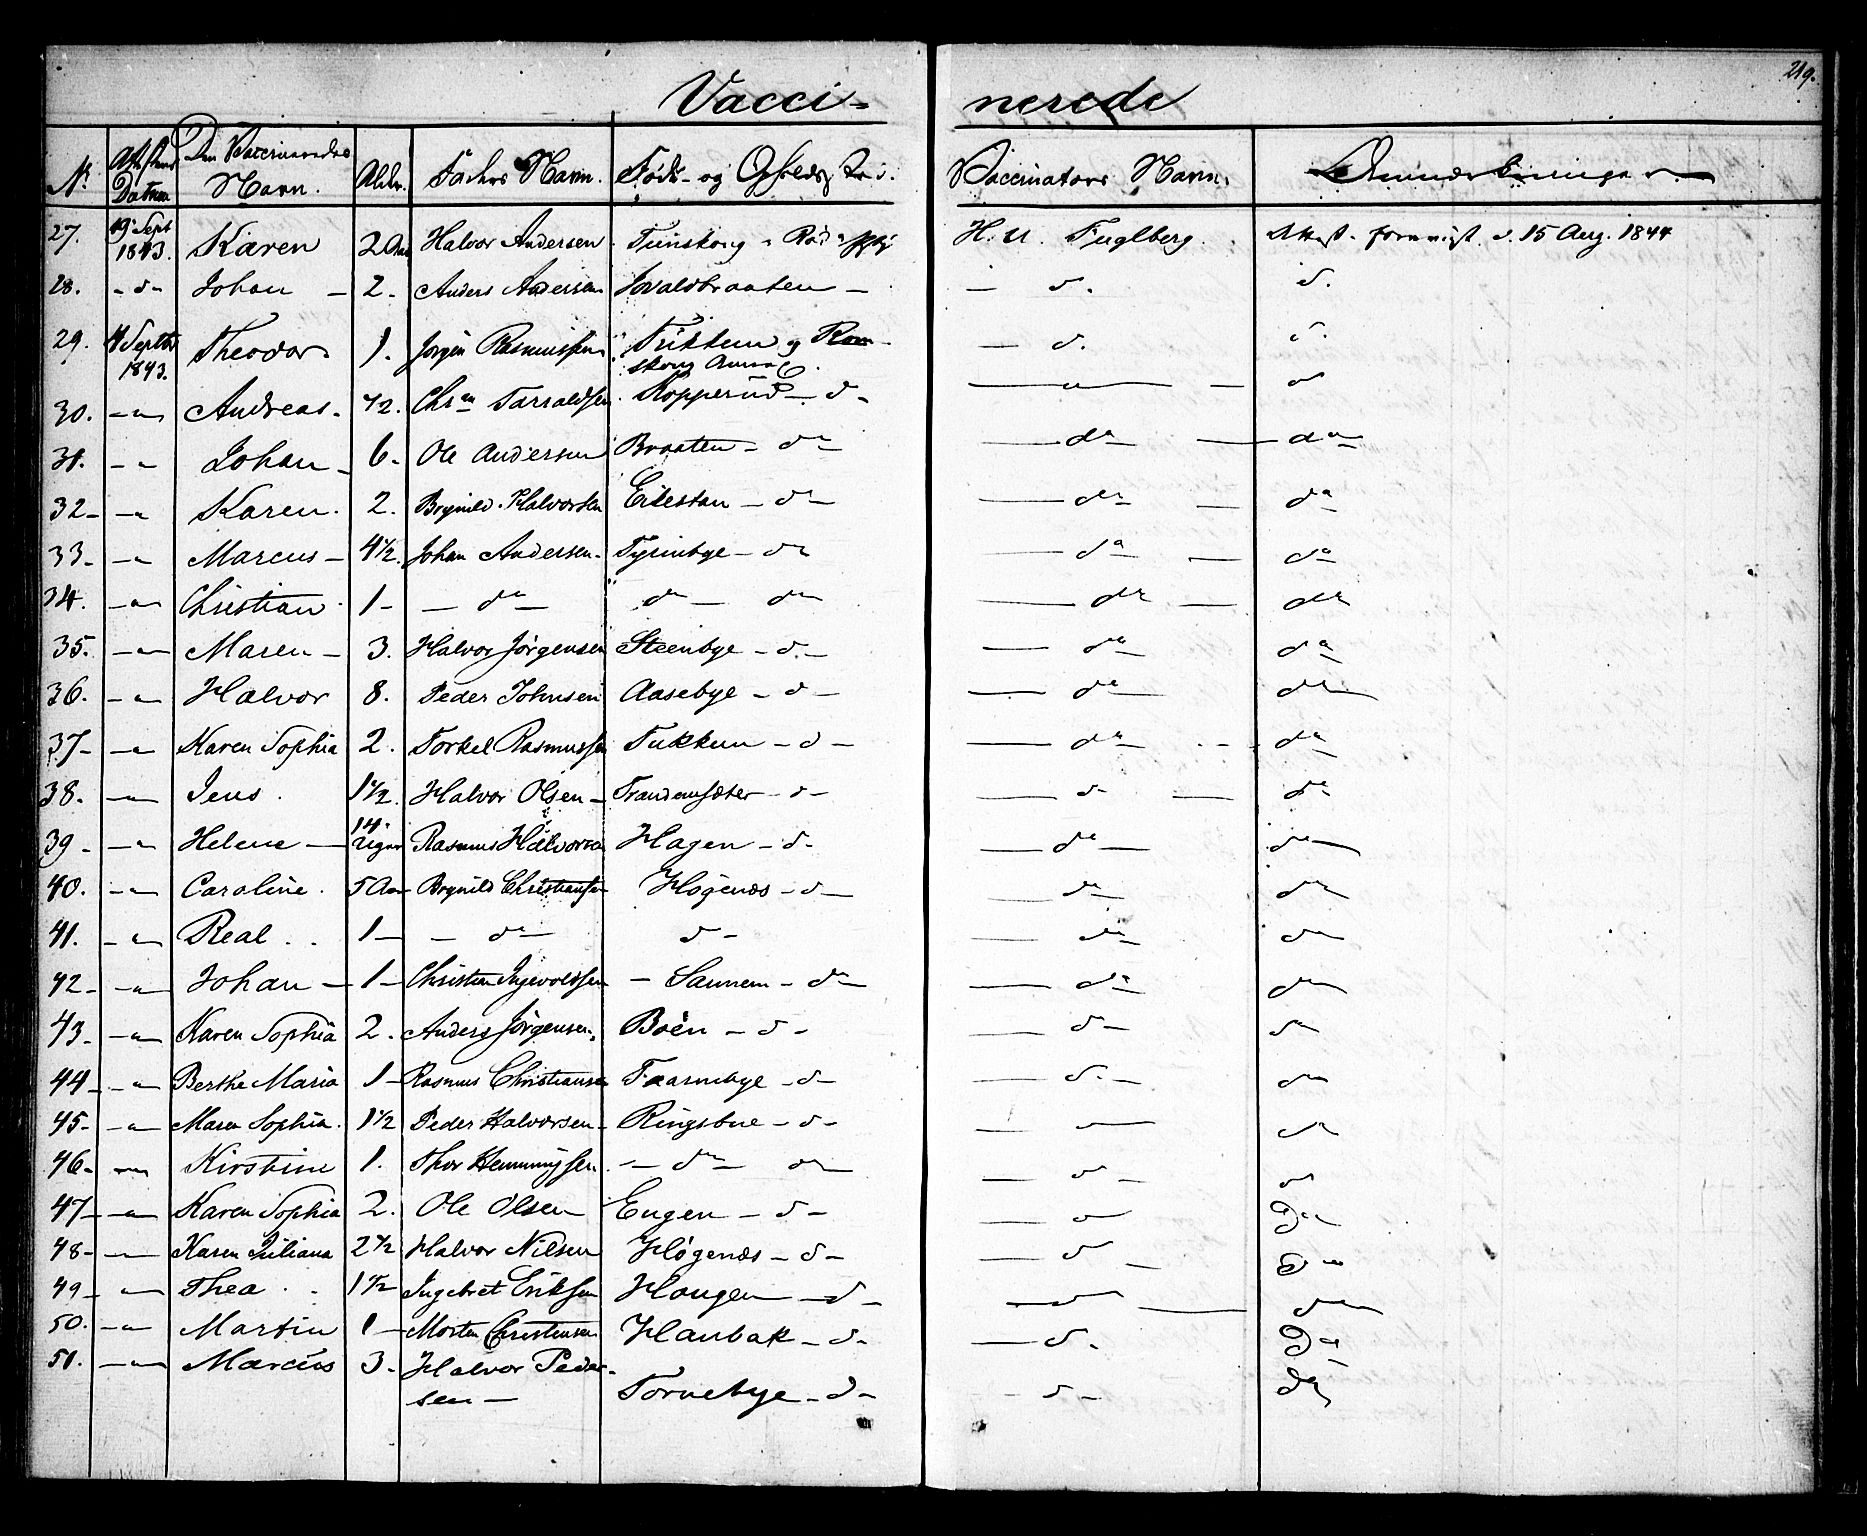 219.
Vacci- nerede
Nr. Attestens Datum Den Vaccineredes Navn. Alder. Faders Navn. Føds- og Opholds Vaccinators Navn. Anmærkninger
27. 19 Sept 1843. Karen 2 Aar Halvor Andersen H. U. Fuglberg. Attest d. 15 Aug. 1844
28. - d - Johan - 2. Anders Andersen - d. d.
29. Septbr 1843. Theodor. 1. Jørgen Rasmussen og Rom- skoug - d. d.
30. - " - Andreas. 1/2. Chr:n Kopperud - d - - " - d
31. - " Johan - 6 - Ole Andersen Braaten - do - do - - do
32 - - " Karen. 2. Brynild Halvorsen - do - - do - do
33 - - " - Marcus - 4 1/2. Johan Andersen. Tyrinbye - do - do - do
34. - " - Christian. 1 - - do - do - do - do - do
35. - " - Maren - 3. Halvor Jørgensen Steenbye - d. - - do do
36. - " - Halvor 8. Peder Johnsen Aasebye - d - - do - do
37 - - " Karen Sophia 2. Torkel Rasmussen - d - - do - do
38. - " - Jens. 1 1/2. Halvor Olsen - - d - - d - - do
39 - - " - Helene - 14. Uger Rasmus Halvorsen Hagen - d - - do - do -
40. - " - Caroline. 5 Aar Brynild Christiansen Høgenæs - d - - do - do
41. - " - Real. . 1 - - do - d - - do do
42 - - " - Johan - 1 - Christian Ingevoldsen - Sannem - do - - do do
43 - - " - Karen Sophia 2. Anders Jørgensen. Boën - d - - d - do
44 - - " - Berthe Maria 1 - Rasmus Christiansen - d - - d. - do
45 - - " - Maren Sophia. 1 1/2 Peder Halvorsen - - d - - " - do
46 - " Kirstine 1. Thor Hemmingsen - do - do - - d - d
47 - - " - Karen Sophia 2. Ole Olsen Engen - d - - d Do
48 - - " - Karen Juliana 2 1/2 Halvor Nilsen Høgenæs - d - - d - Do
49 - - " - Thea. . 1 1/2 Ingebret Eriksen Haugen - d - - d - do
50. - " - Martin 1 - Morten Christensen - d - - d. Do
51. - " - Marcus 3 - Halvor Peder-
sen - Tornebye - d - - d - do